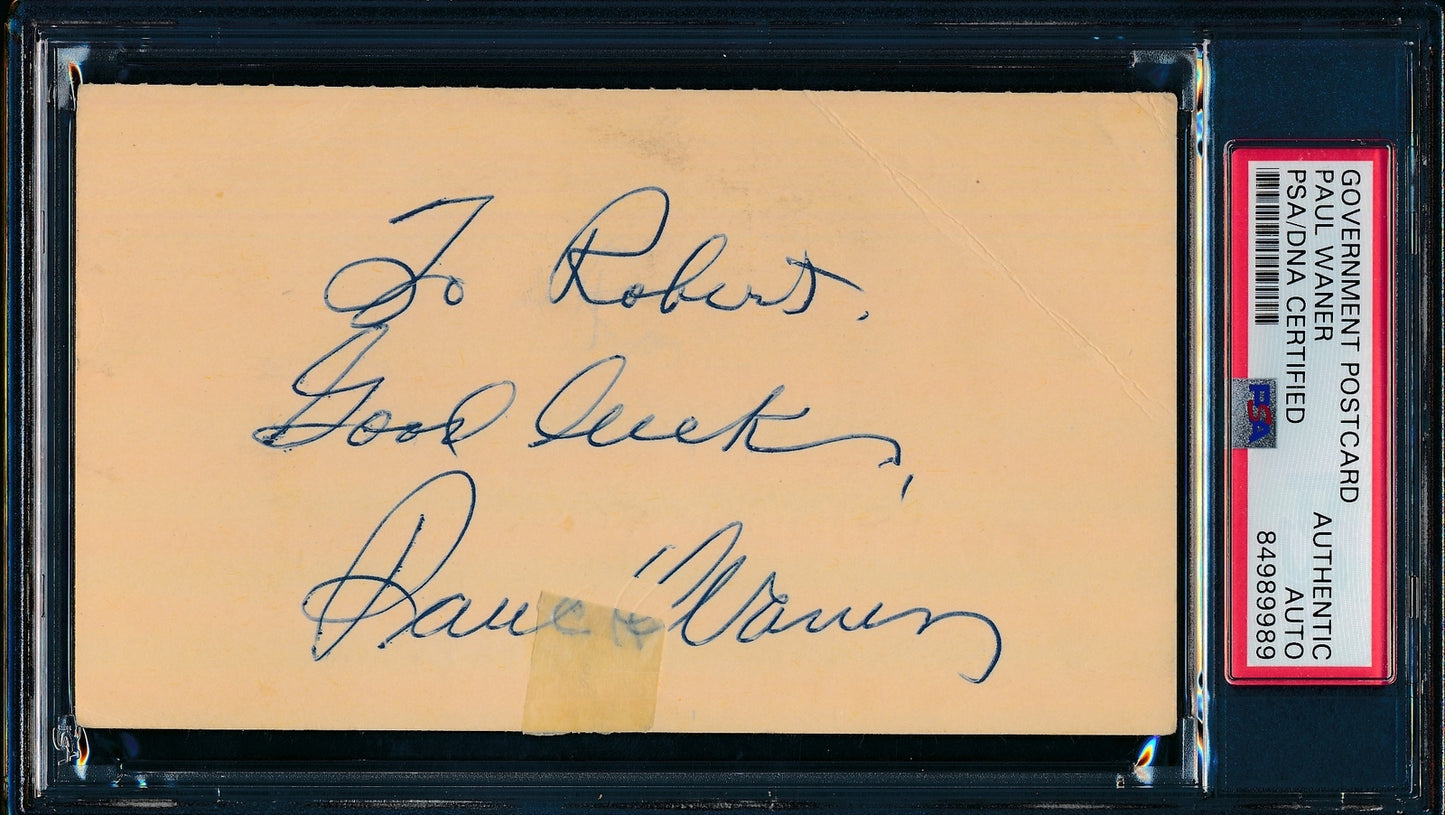 To Robert,
Good Luck,
Paul Waner
GOVERNMENT POSTCARD
PAUL WANER AUTHENTIC
PSA/DNA CERTIFIED AUTO
84989989
PSA